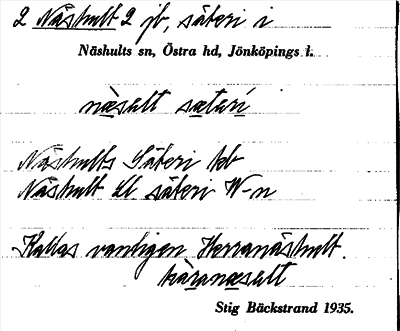 2 Näshult 2 jb, säteri i
Näshults sn, Östra hd, Jönköpings l.
næsult sætari
Näshults Säteri kb
Näshult Lt säteri W-n
Kallas vanligen Herranäshult.
hàranæsult
Stig Bäckstrand 1935.